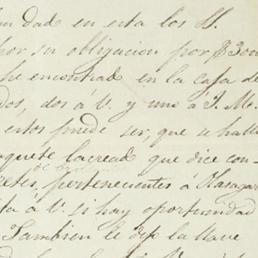 dad en esta los SS.
por su obligacion por $300
he encontrad en la caja de
dos, dos á V. y uno á J. M.
estos puede ser, que se halle
aquete lacread que dice con
etes, pertenecientes á
ta á V. si hay oportunidad
Tambien le dejo la llave